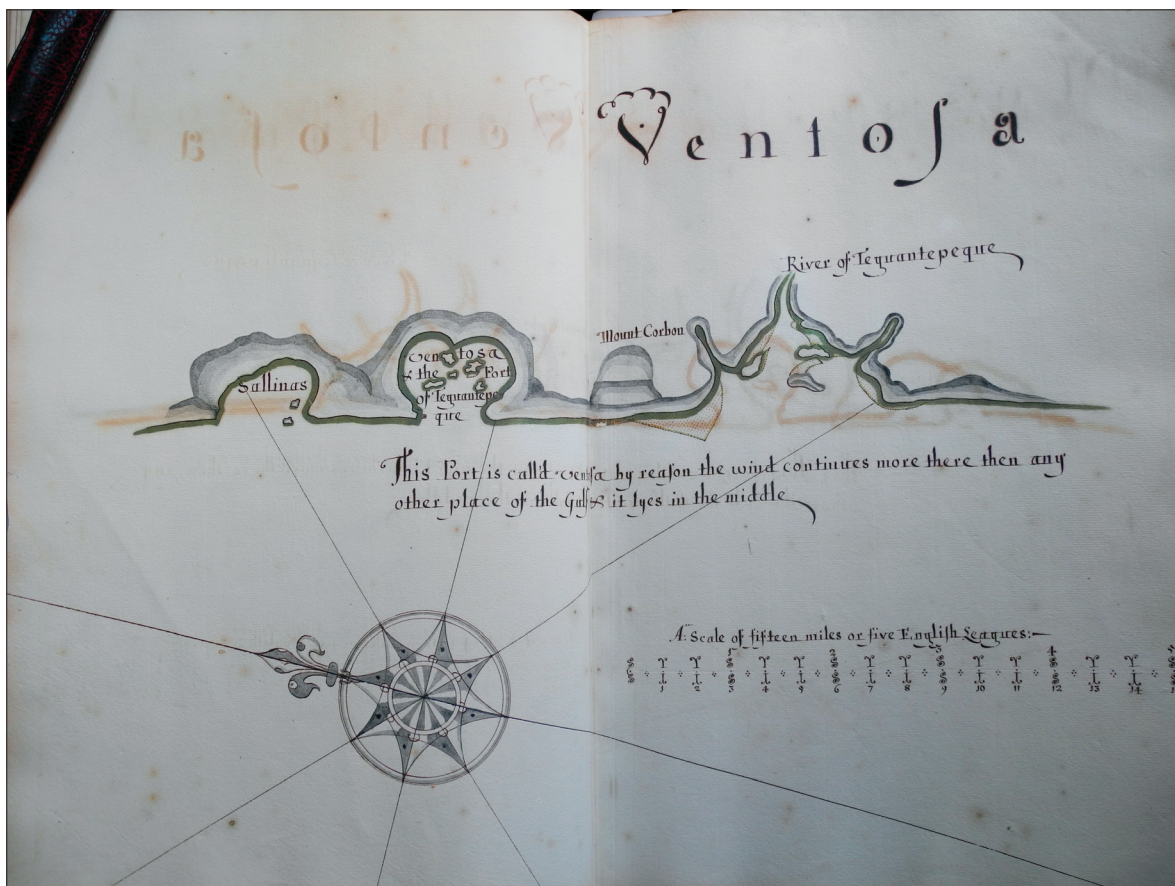 Ventoſa
River of Tequantepeque
Mount Corbon
Sallinas
ventosa
& the Port
of Tequantepe
que
This Port is call'd ventſa by reaſon the wind continues more there then any
other place of the Gulf & it lyes in the middle
A Scale of fifteen miles or five English Leagues:
1 2 3 4
1 2 3 4 5 6 7 8 9 10 11 12 13 14